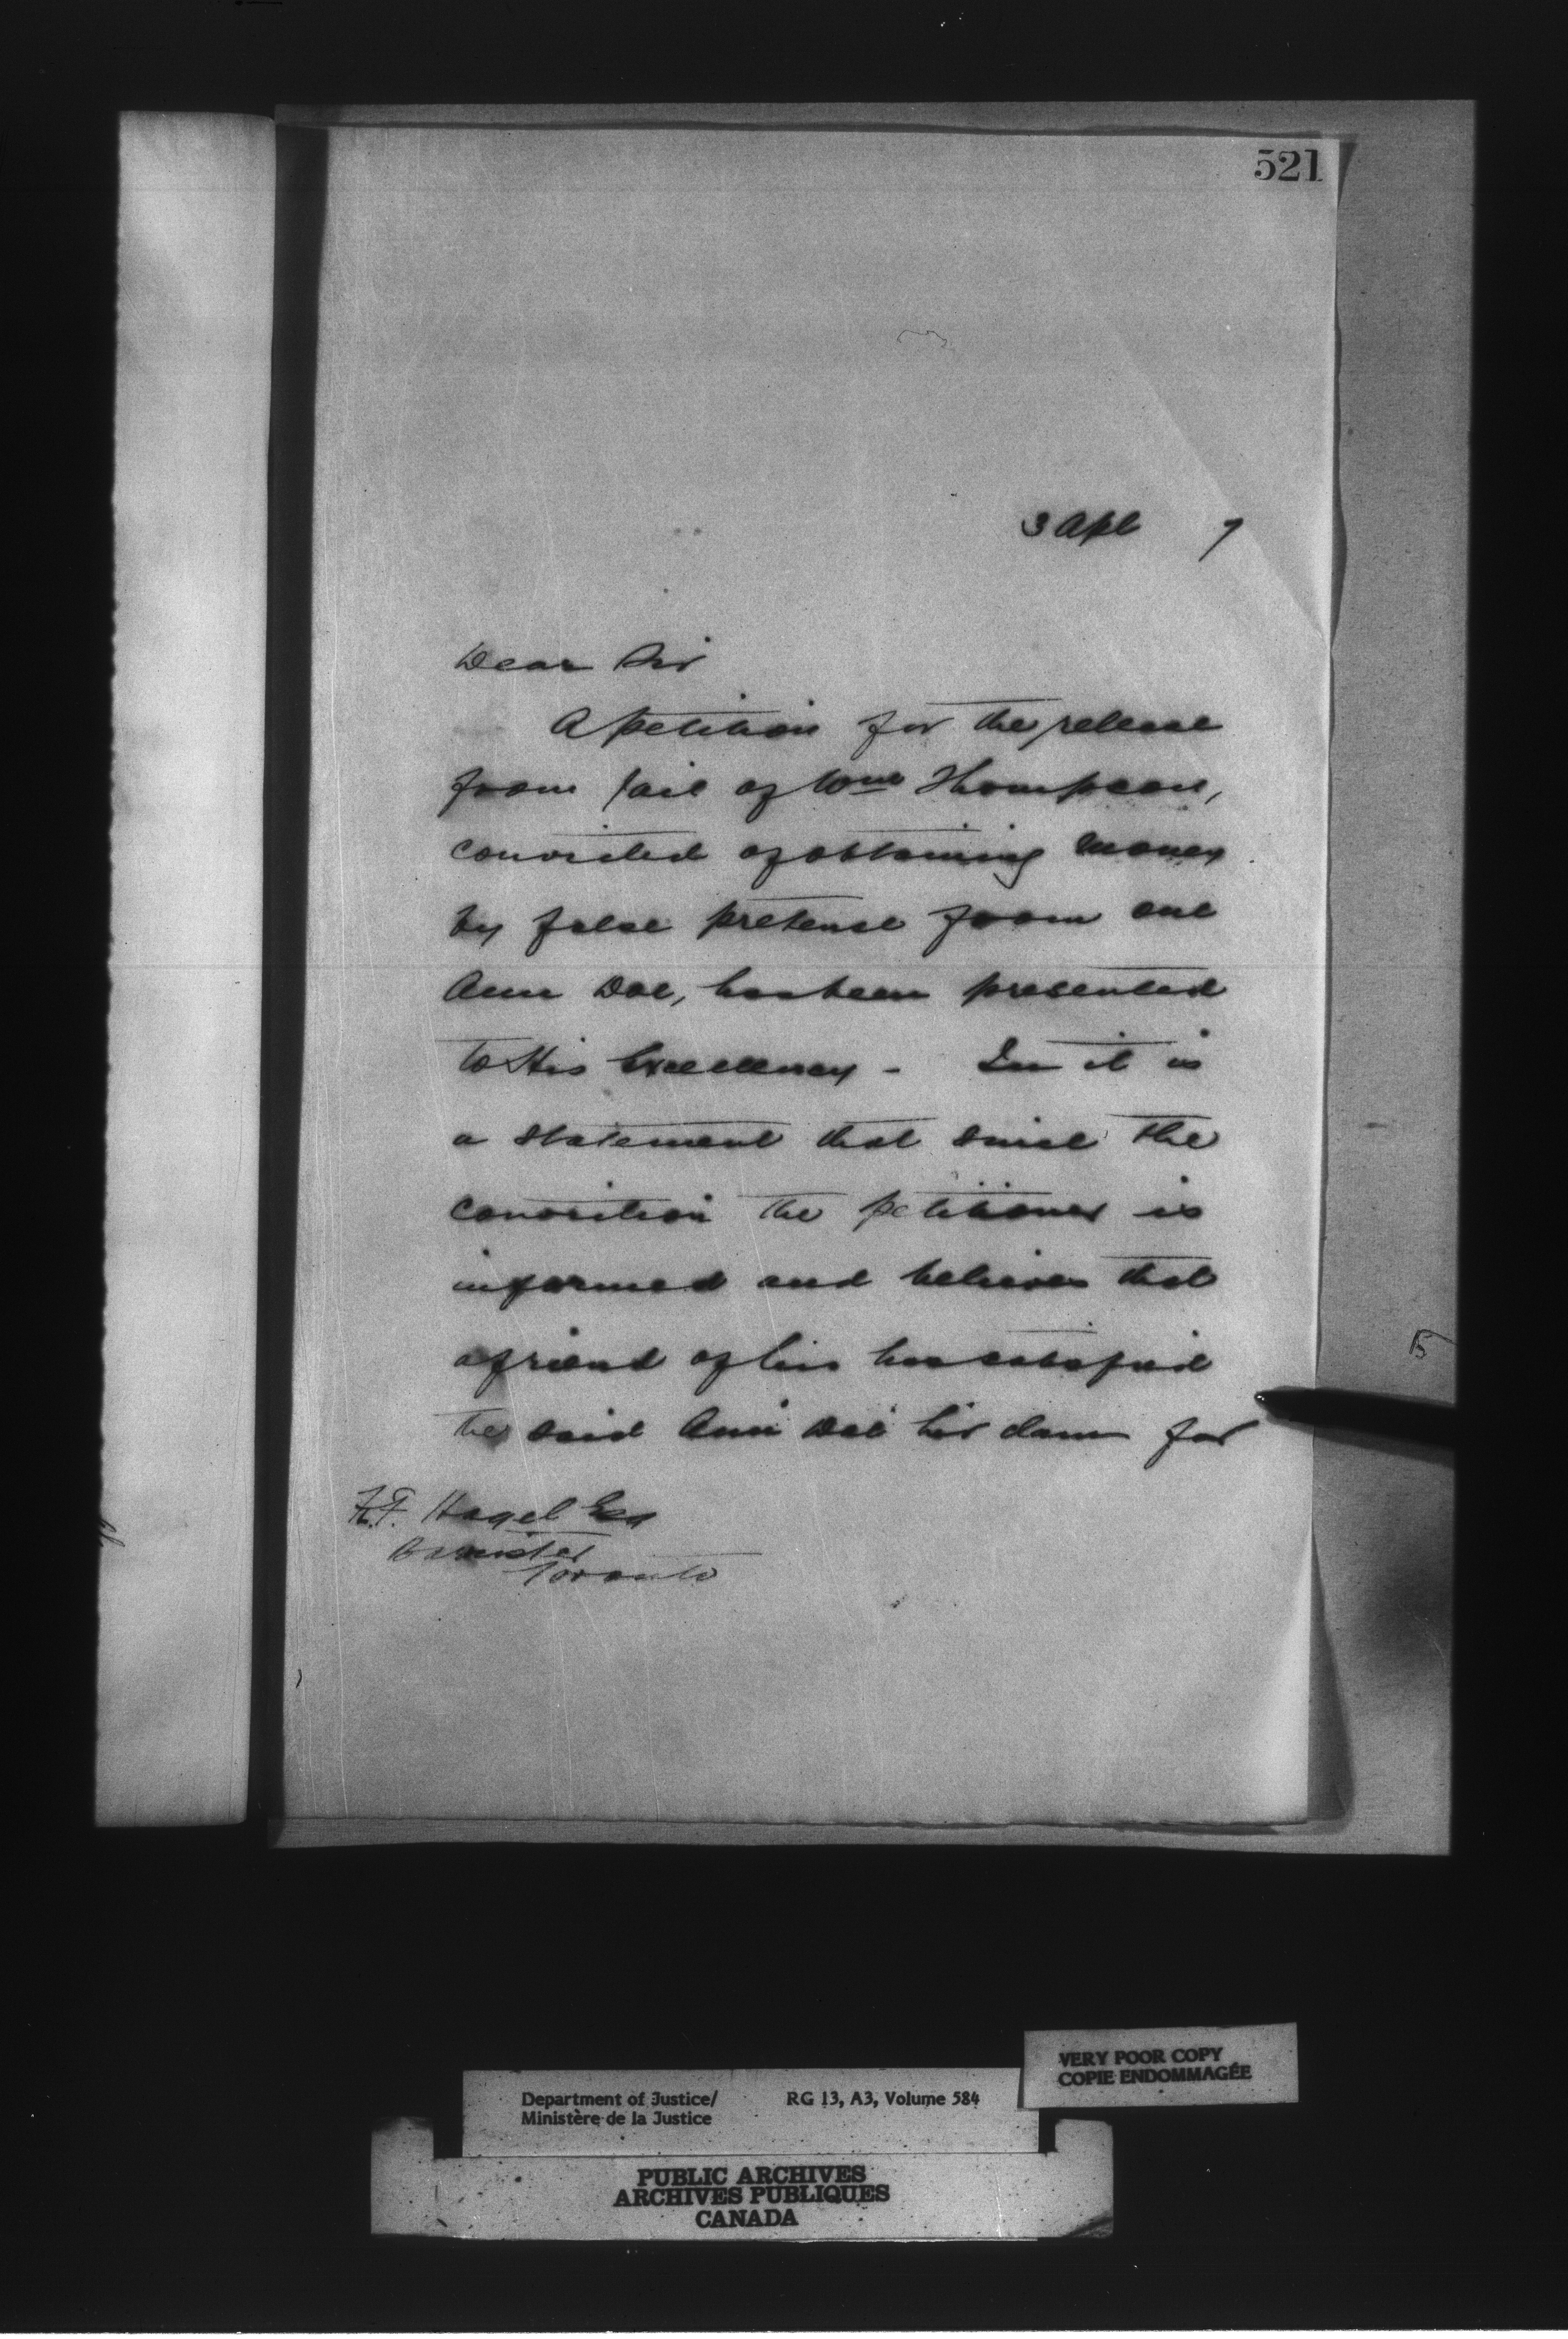 521
3 Apl 7
Dear Sir
A petition for the release
from jail of Wm Thompson,
convicted of obtaining money
by false pretense from one
Ann Doe, has been presented
to His Excellency - In it is
a statement that since the
conviction the petitioner is
informed and believes that
a friend of his has satisfied
the said Ann Doe her claim for
Hagel Esq
Barrister
Toronto
Department of Justice/ RG 13, A3, Volume 584
Ministère de la Justice
VERY POOR COPY
COPIE ENDOMMAGÉE
PUBLIC ARCHIVES
ARCHIVES PUBLIQUES
CANADA